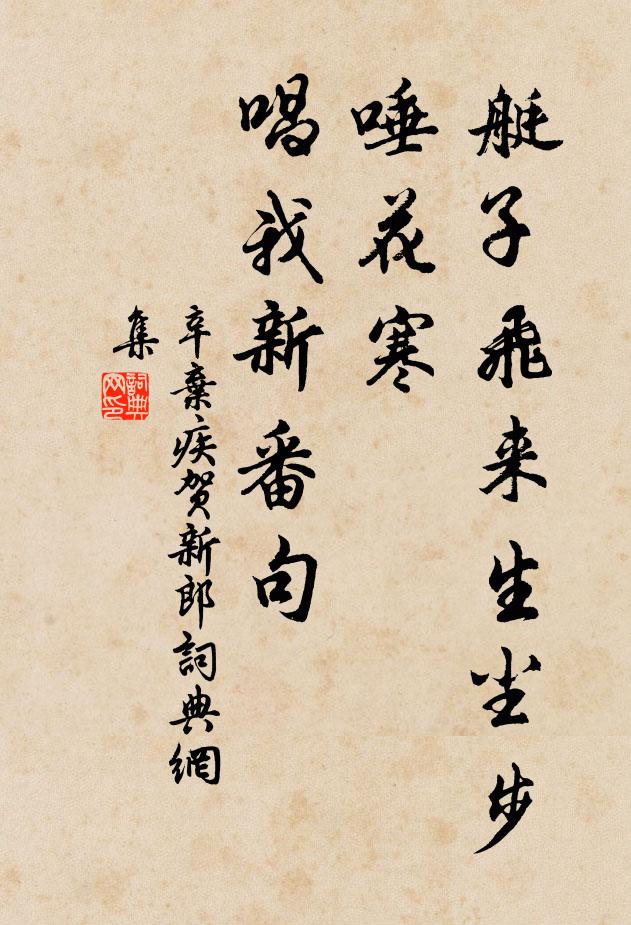 艇子飛来生尘步
唾花寒
唱我新番句
辛棄疾賀新郎詞典網
集
詞典网印